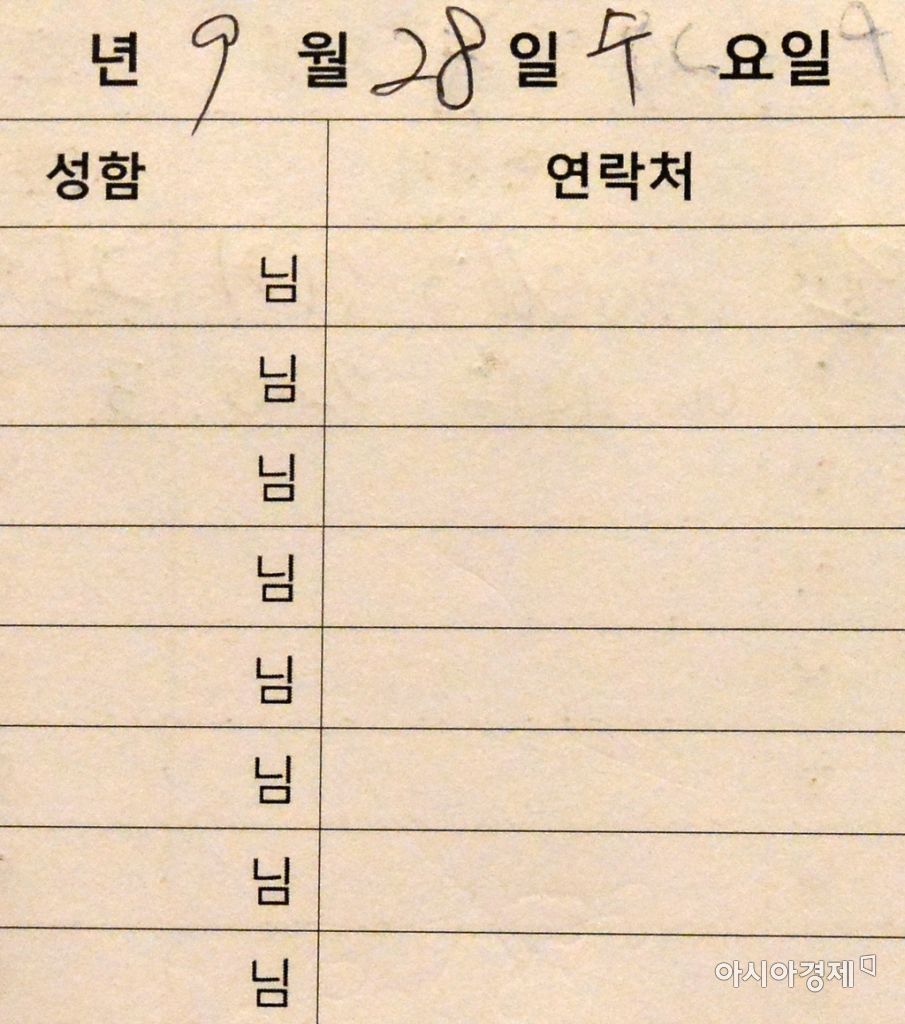 년 9 월 28 일 수 요일
성함 연락처
님
님
님
님
님
님
님
님
아시아경제